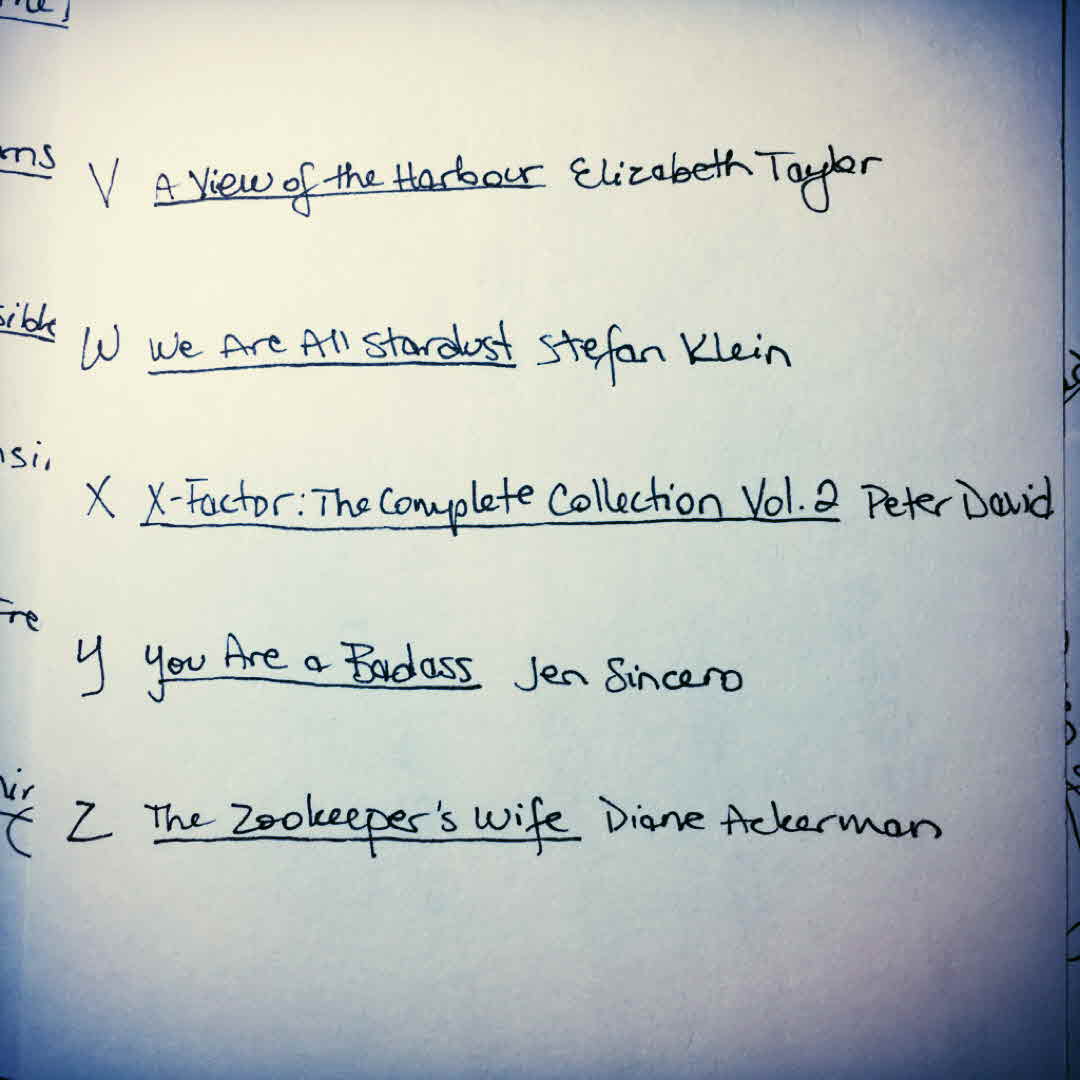 V A View of the Harbour Elizabeth Taylor
W We Are All Stardust Stefan Klein
X X-Factor: The Complete Collection Vol. 2 Peter David
Y You Are a Badass Jen Sincero
Z The Zookeeper's Wife Diane Ackerman